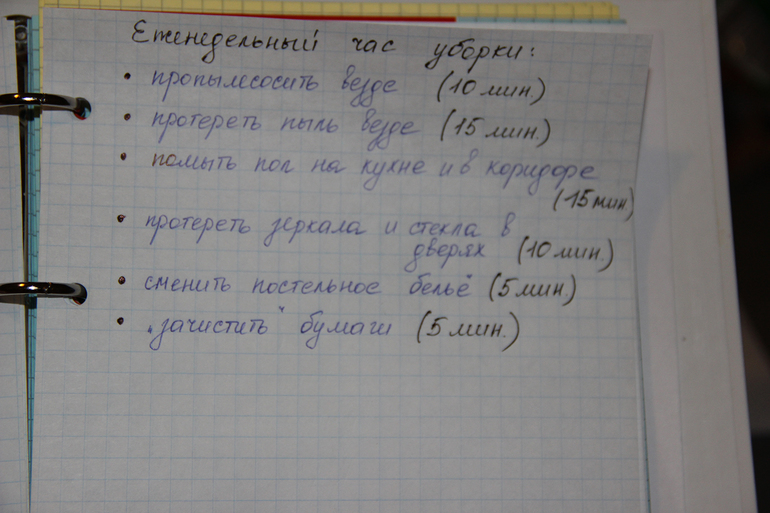 Еженедельный час уборки:
• пропылесосить везде (10 мин.)
• протереть пыль везде (15 мин.)
• помыть пол на кухне и в коридоре
(15 мин)
• протереть зеркала и стекла в
дверях (10 мин.)
• сменить постельное бельё (5 мин)
• „зачистить“ бумаги (5 мин.)